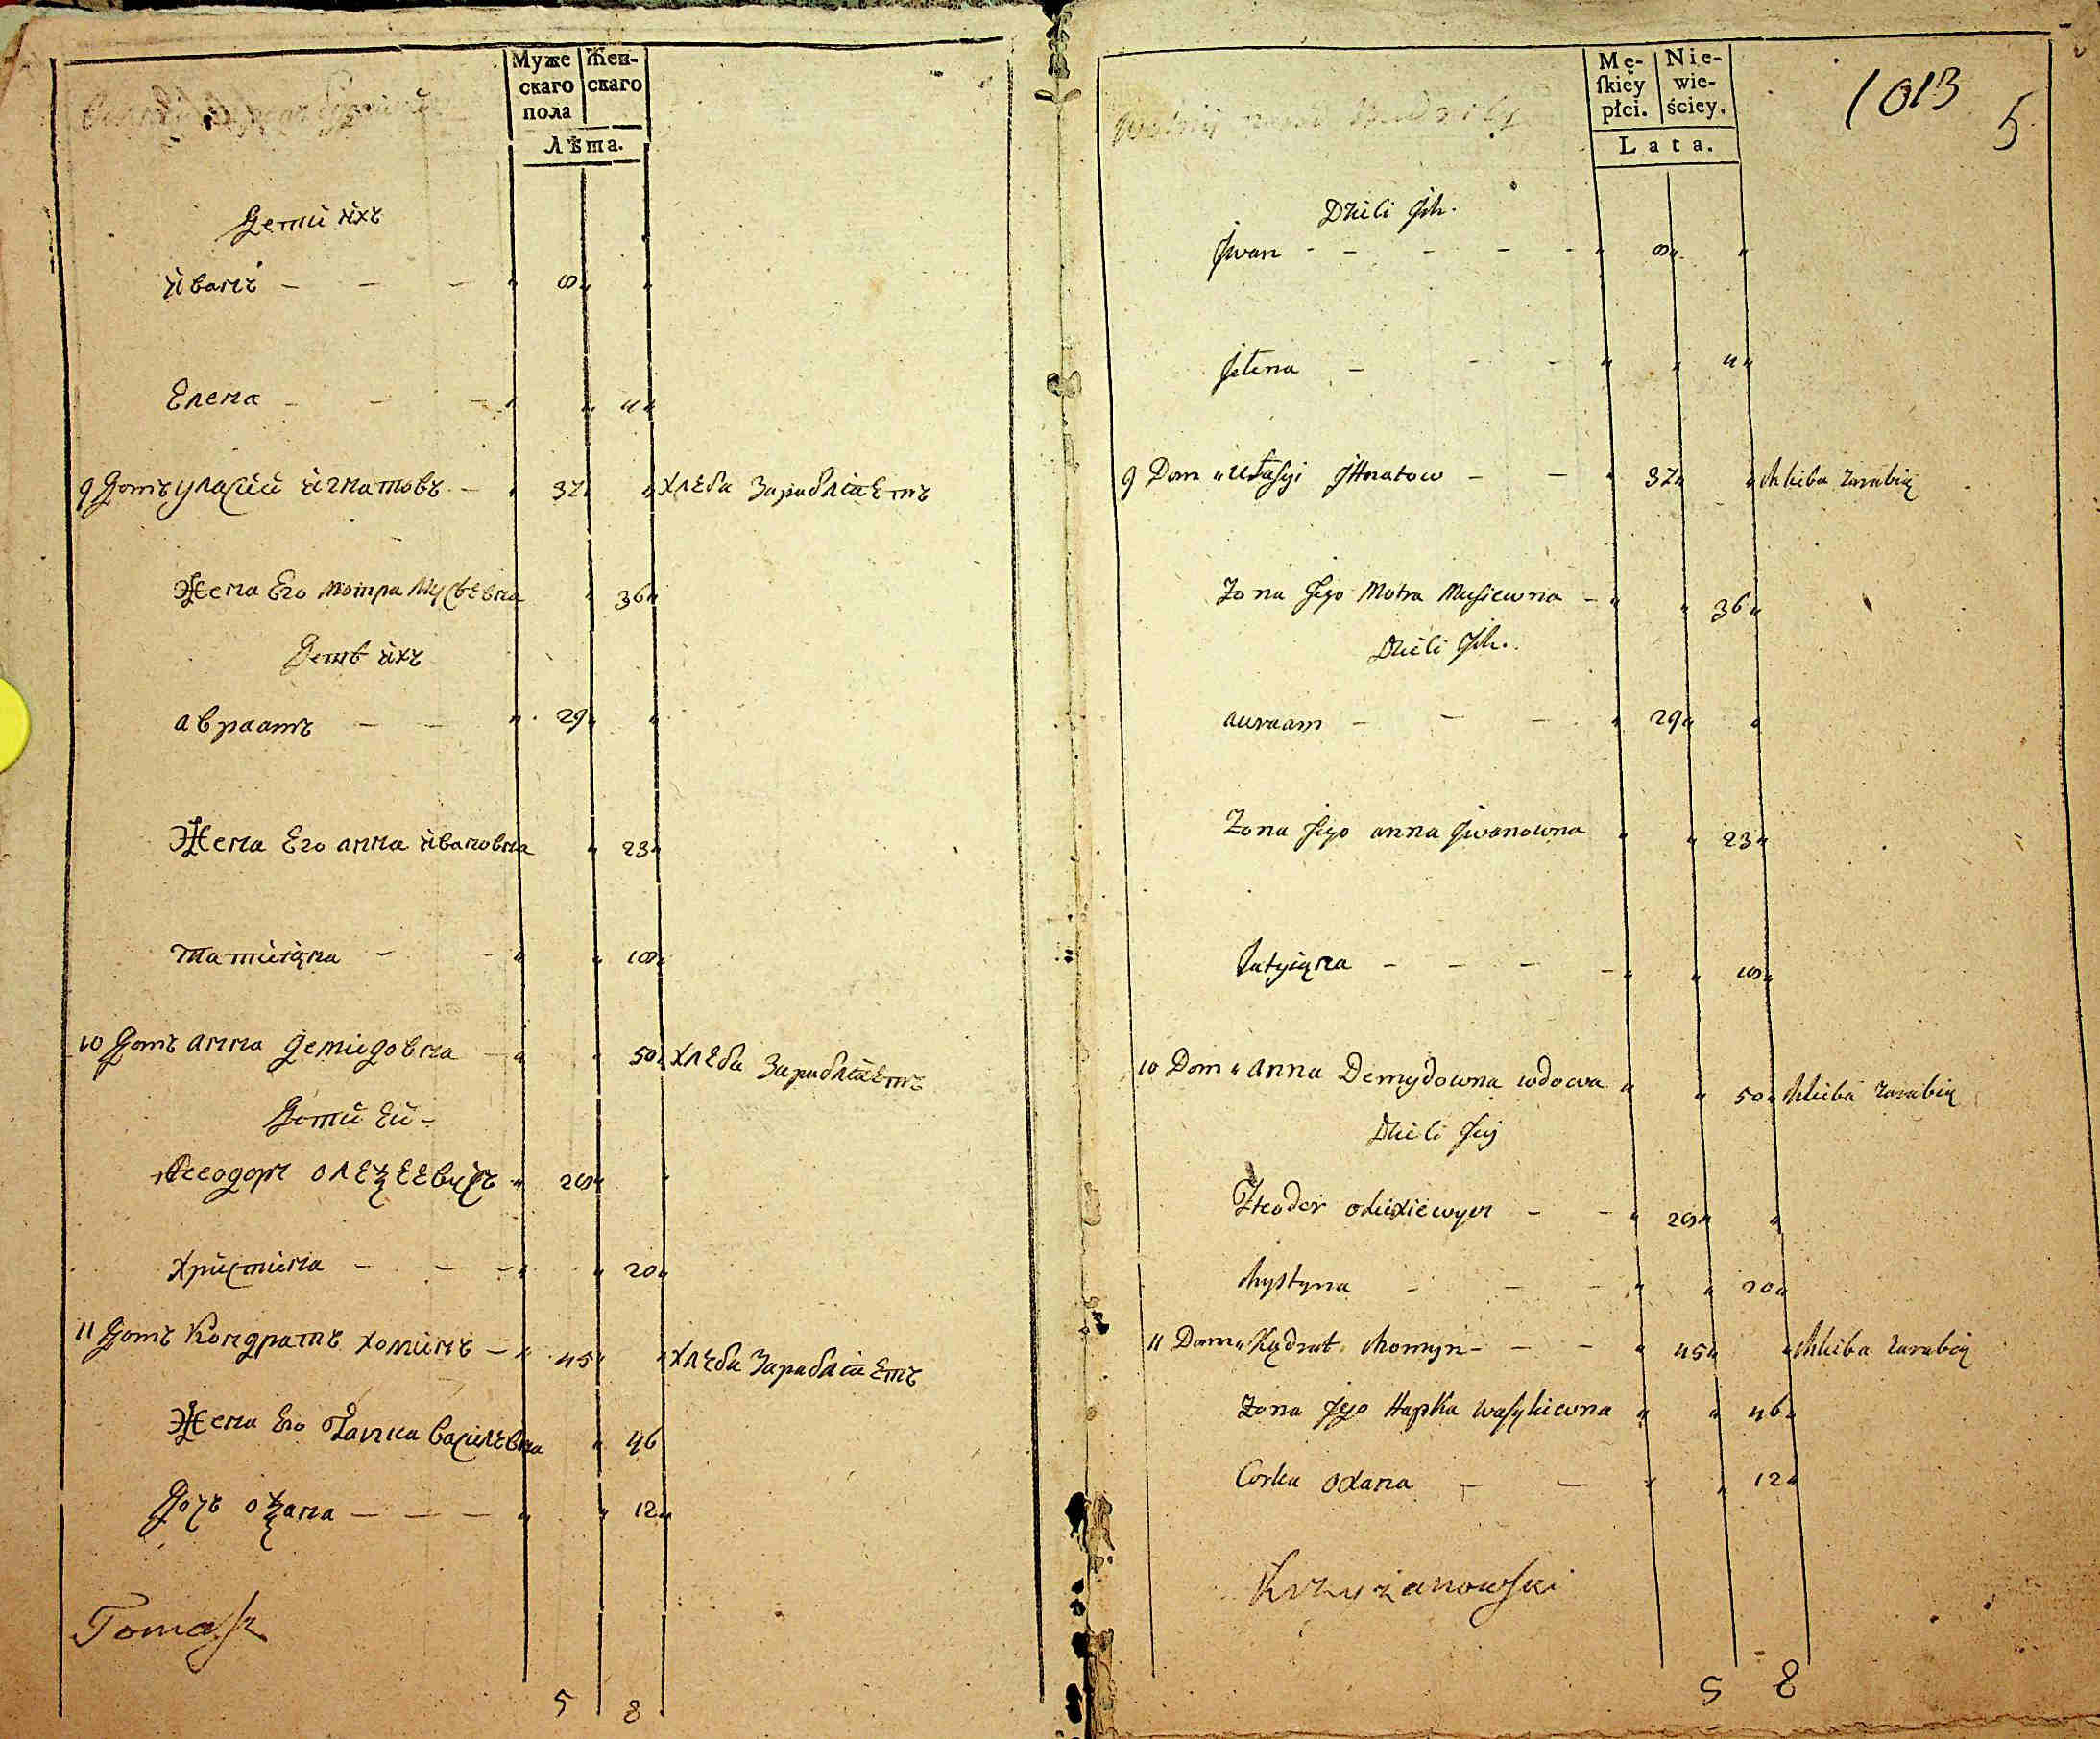 Муже Жен-
скаго скаго
пола
Лѣта.
Дети ихъ
Иванъ — — — " 8 " "
Елена — — — " " 4 "
9 Домъ Уласий Игнатовъ — " 37 " " хлеба зарабляетъ
Жена Его Мотра Мусѣевна " 36 "
Дети ихъ
авраамъ — — " 29 " "
Жена Его анна Ивановна " 23 "
Татияна — — " " 18 "
10 Домъ анна Демидовна — " " 50 " хлеба зарабляетъ
Дети Ей —
Феодоръ олеѯеевичъ " 28 "
Христина — — — " " 20 "
11 Домъ Кондратъ хоминъ — " 45 " " хлеба зарабляетъ
Жена Его Гапка василевна " 46
Дочь оѯана — — — " " 12 "
Tomasz
5 8
Mę- Nie-
ſkiey wie-
płci. ściey.
Lata.
1013
5
Dzieci Jch.
Jwan - - - - - " 8 " "
Jełena — - - " " 4 "
9 Dom " Ułasyi JHnatow — — " 37 " " chliba zarabią
Zona Jego Motra Musiewna — " " 36 "
Dzieci Jch.
awraam — — — " 29 " "
Zona Jego anna Jwanowna " " 23 "
Tatyiąna — — — — " " 18 "
10 Dom " anna Demydowna wdowa " " 50 " chliba zarabią
Dzieci Jey
Fteodor olexiewycz — — " 28 " "
Chrystyna — — — " " 20 "
11 Dom " Kądrat Chomyn — — — " 45 " " chliba zarabią
Zona Jego Hapka wasyliewna " " 46 "
Corka oxana — — " " 12 "
Krzyżanowſki
5 8